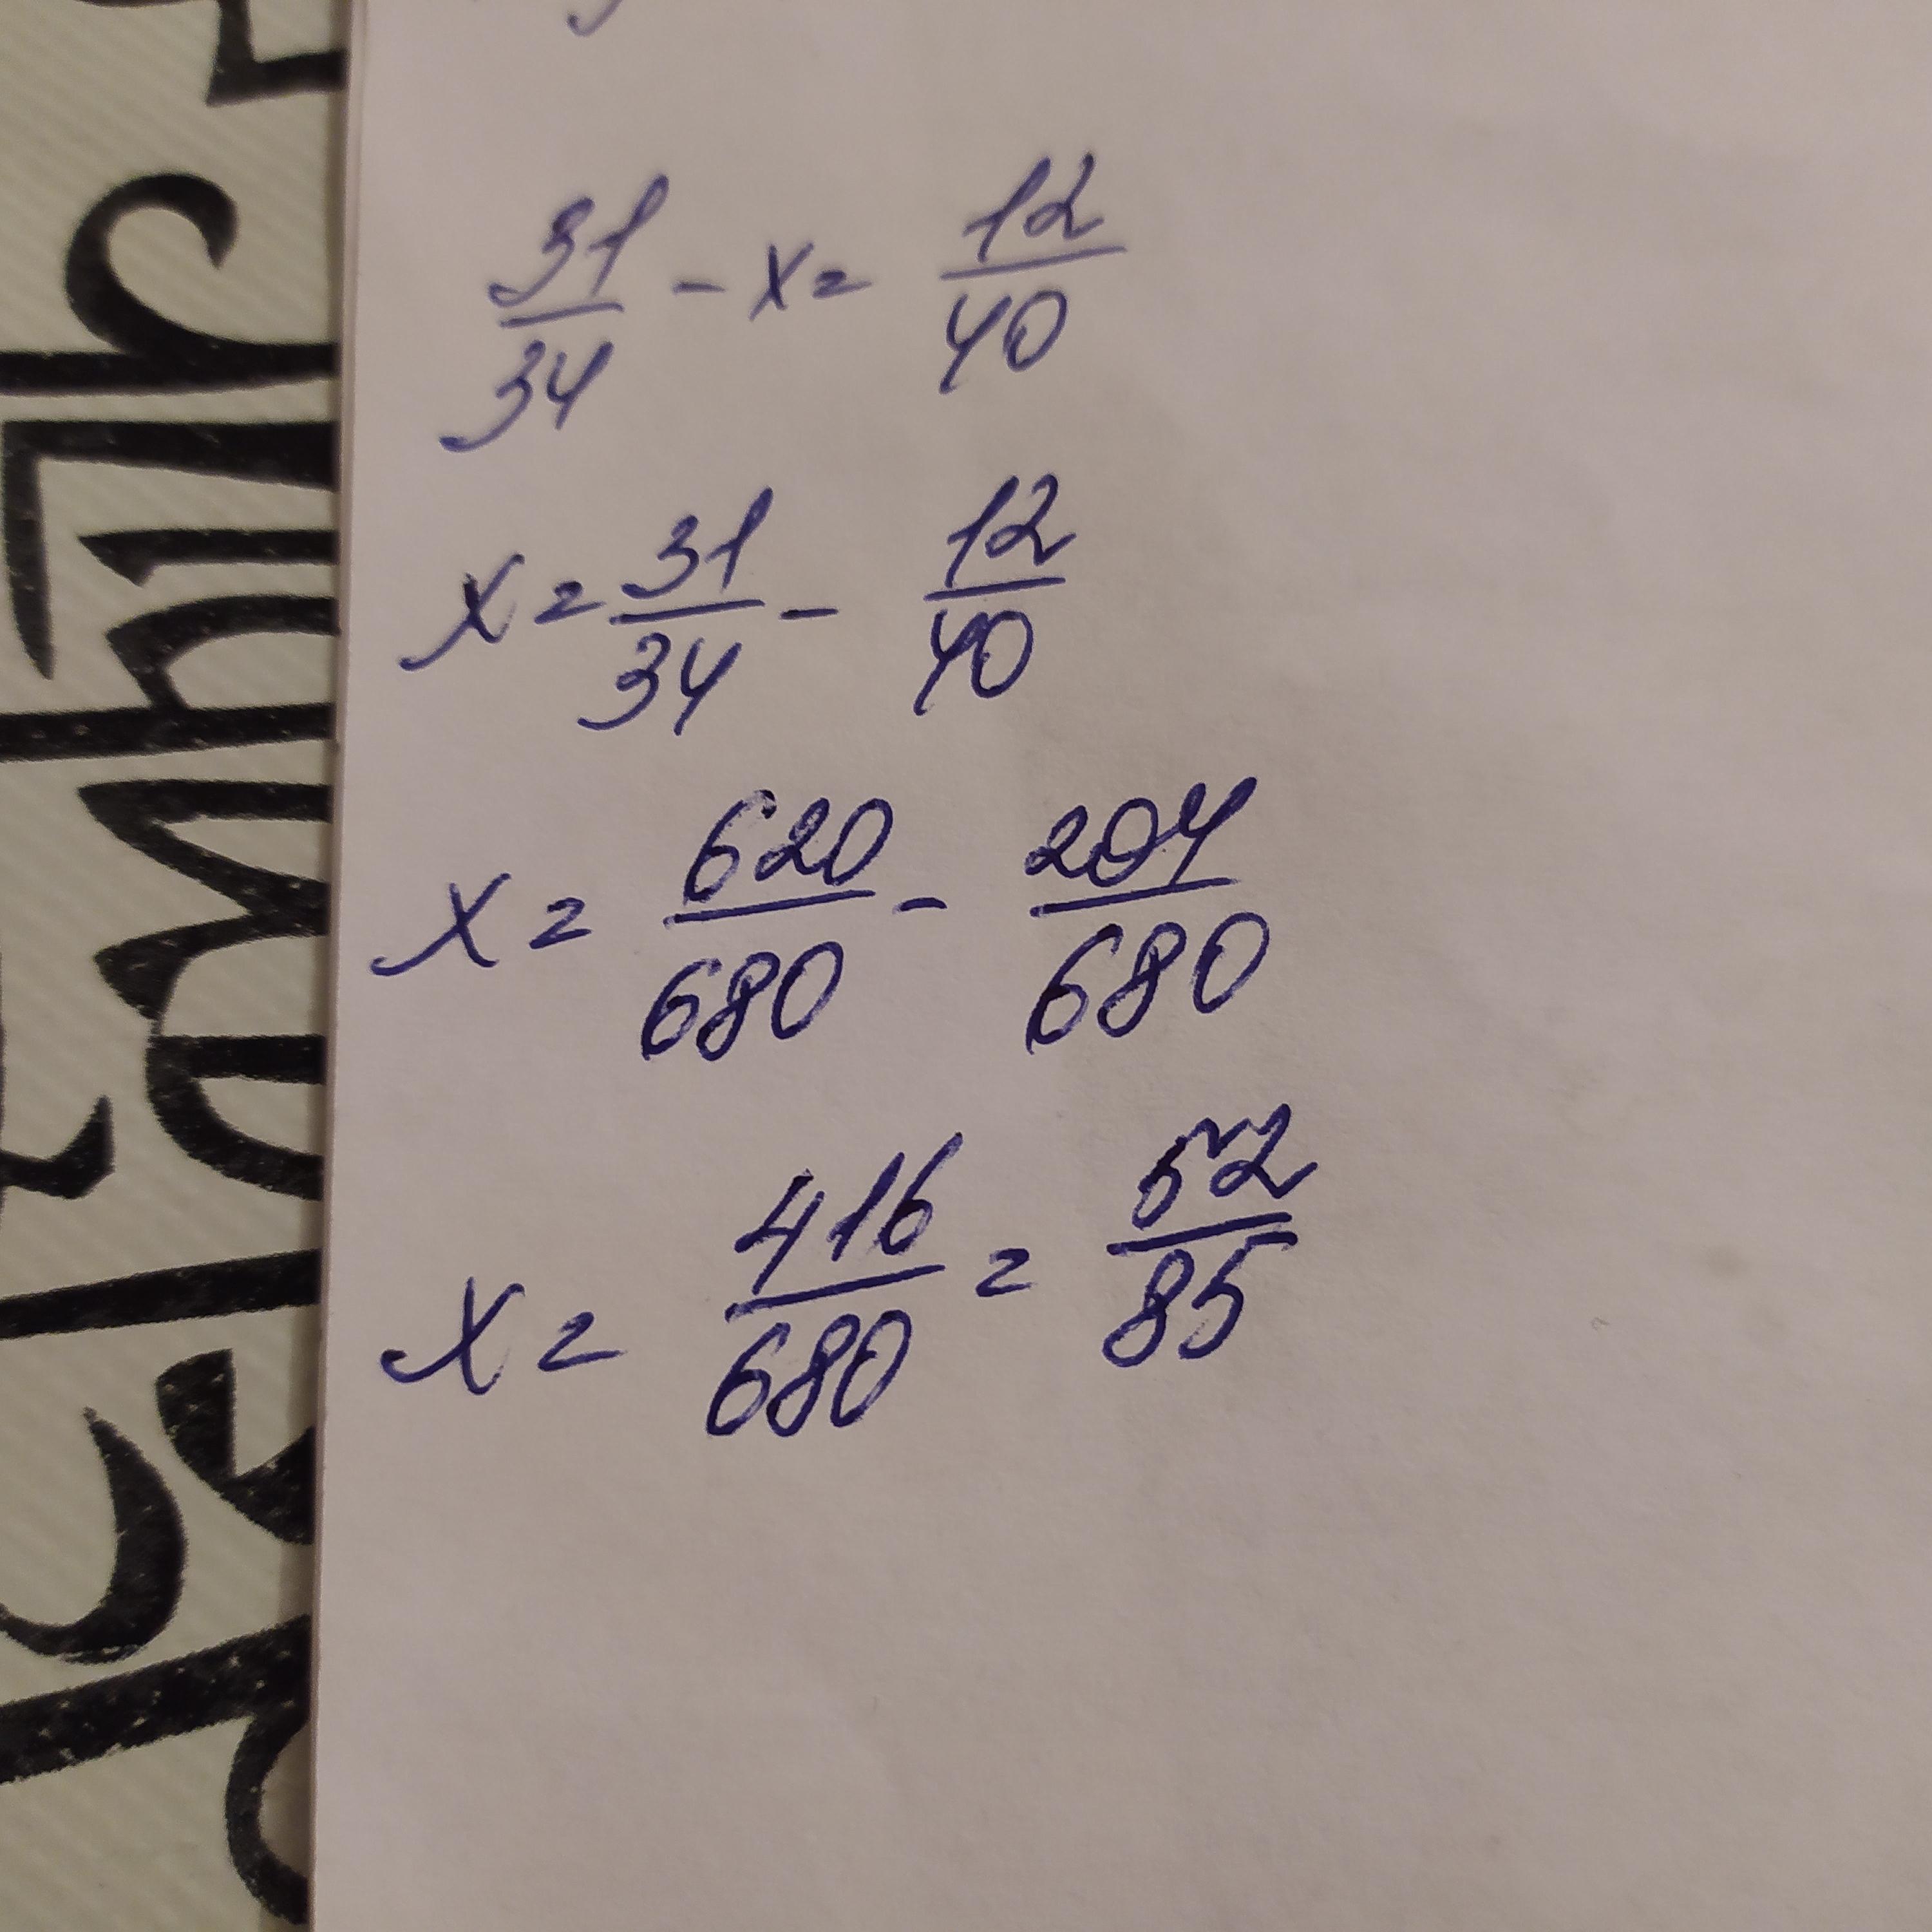 31/34 - x = 12/40
x = 31/34 - 12/40
x = 620/680 - 204/680
x = 416/680 = 52/85